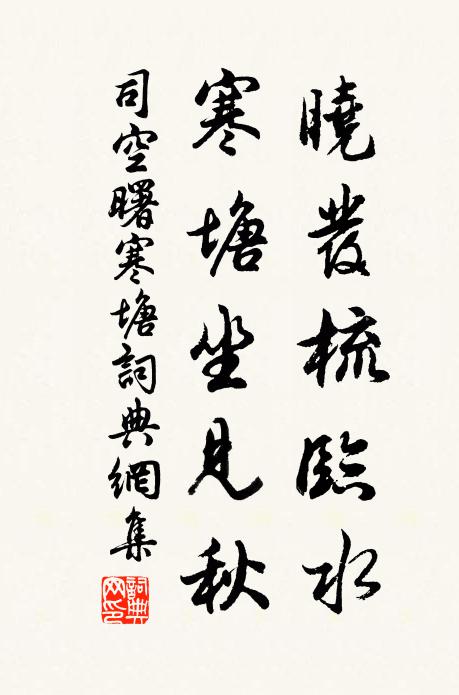 曉發梳臨水
寒塘坐見秋
司空曙寒塘詞典網集
詞典網印